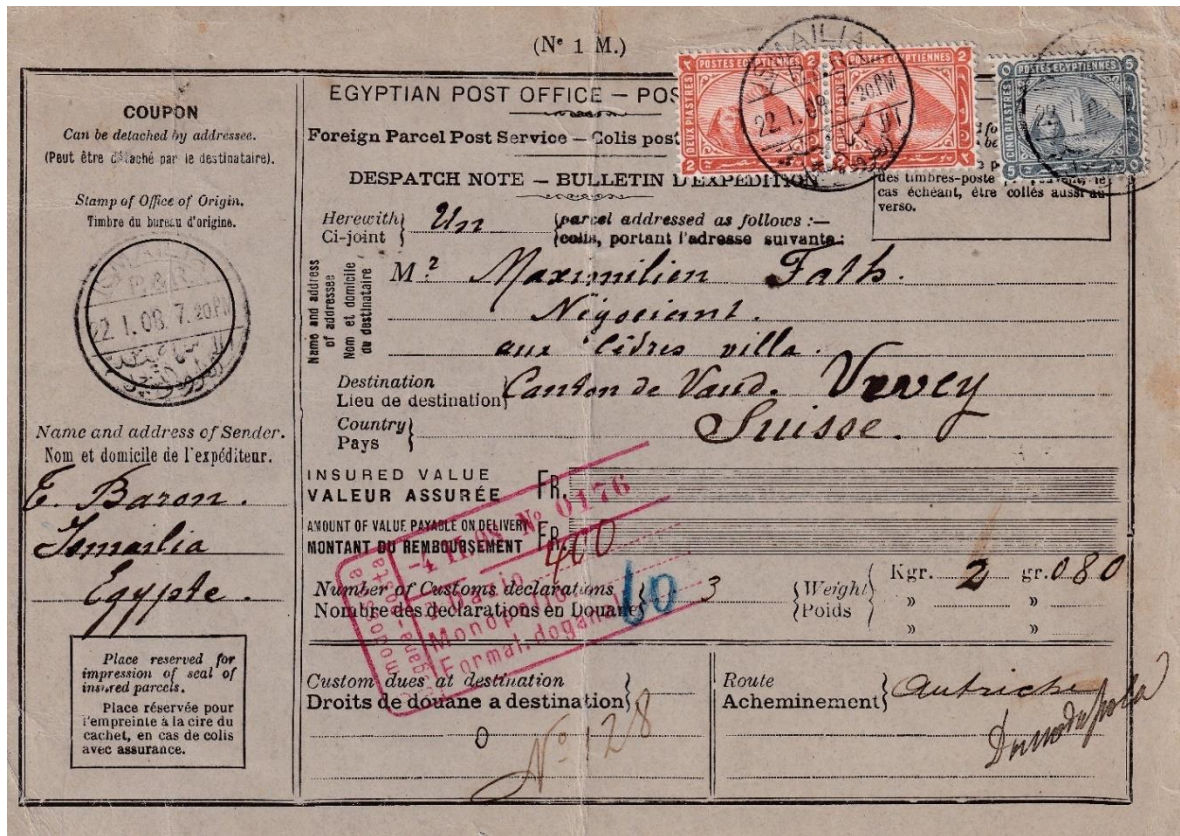 (Nº 1 M.)
COUPON
Can be detached by addressee.
(Peut être détaché par le destinataire).
Stamp of Office of Origin.
Timbre du bureau d'origine.
22 I. 08. 7. 20 PM
Name and address of Sender.
Nom et domicile de l'expéditeur.
E. Baron.
Ismailia
Egypte.
Place reserved for
impression of seal of
insured parcels.
Place réservée pour
l'empreinte à la cire du
cachet, en cas de colis
avec assurance.
EGYPTIAN POST OFFICE — POS
Foreign Parcel Post Service — Colis post
DESPATCH NOTE — BULLETIN D'EXPEDITION
POSTES EGYPTIENNES
DEUX PIASTRES
2
POSTES EGYPTIENNES
2
POSTES EGYPTIENNES
CINQ PIASTRES
5
ISMAILIA
22. I. 08. 7. 20 PM
des timbres-poste
cas échéant, être collés aussi au
verso.
Herewith Un parcel addressed as follows :—
Ci-joint colis, portant l'adresse suivante:
Name and address
of addressee
Nom et domicile
du destinataire
Mr Maximilien Fath.
Négociant.
aux Cèdres villa.
Destination
Lieu de destination Canton de Vaud. Vevey
Country
Pays Suisse.
INSURED VALUE
VALEUR ASSURÉE FR.
AMOUNT OF VALUE PAYABLE ON DELIVERY
MONTANT DU REMBOURSEMENT FR.
400
-4 II. 08 Nº 0176
Dazio
Monopolio
Formal. doganal
Number of Customs declarations
Nombre des déclarations en Douane 3
60
Weight
Poids
Kgr. 2 gr. 080
» »
» »
Custom dues at destination
Droits de douane a destination
0
Nº 128
Route
Acheminement Autriche
Domodossola